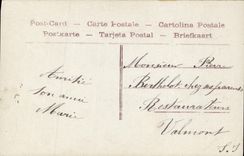 Post-Card - Carte Postale - Cartolina Postale
Postkarte - Tarjeta Postal - Briefkaart
Amitié
ton amie
Marie
Monsieur Pierre
Berthelot chez ses parents
Restaurateur
Valmont
S. I